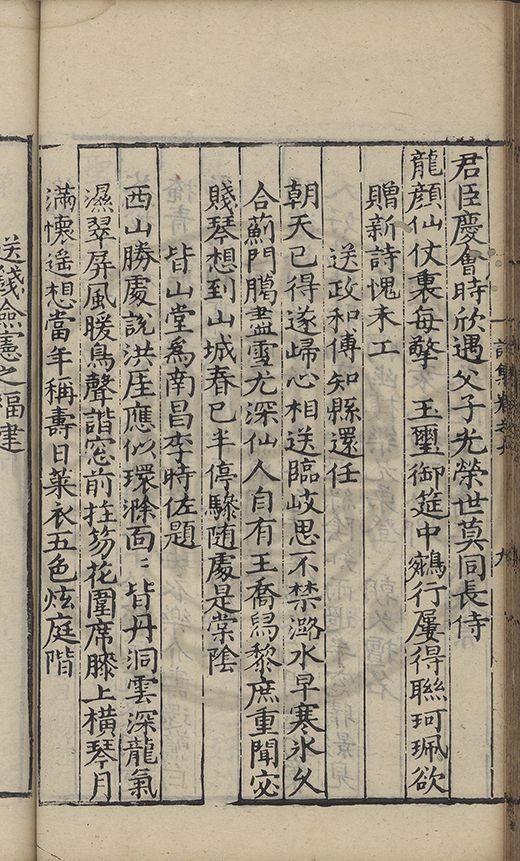 君臣慶會時欣遇父子光榮世莫同長侍
龍顏仙仗裏每擎 玉璽御筵中鵷行屢得聯珂珮欲
贈新詩愧未工
送政和傅知縣還任
朝天已得遂歸心相送臨岐思不禁潞水早寒氷久
合薊門臈盡雪尤深仙人自有王喬舄黎庶重聞宓
賤琴想到山城春已半停驂随處是棠陰
皆山堂爲南昌李時佐題
西山勝處說洪厓應似環滁面〻皆丹洞雲深龍氣
濕翠屏風暖鳥聲諧窓前拄笏花圍席膝上橫琴月
滿懷遥想當年稱壽日萊衣五色炫庭階
送錢僉憲之福建